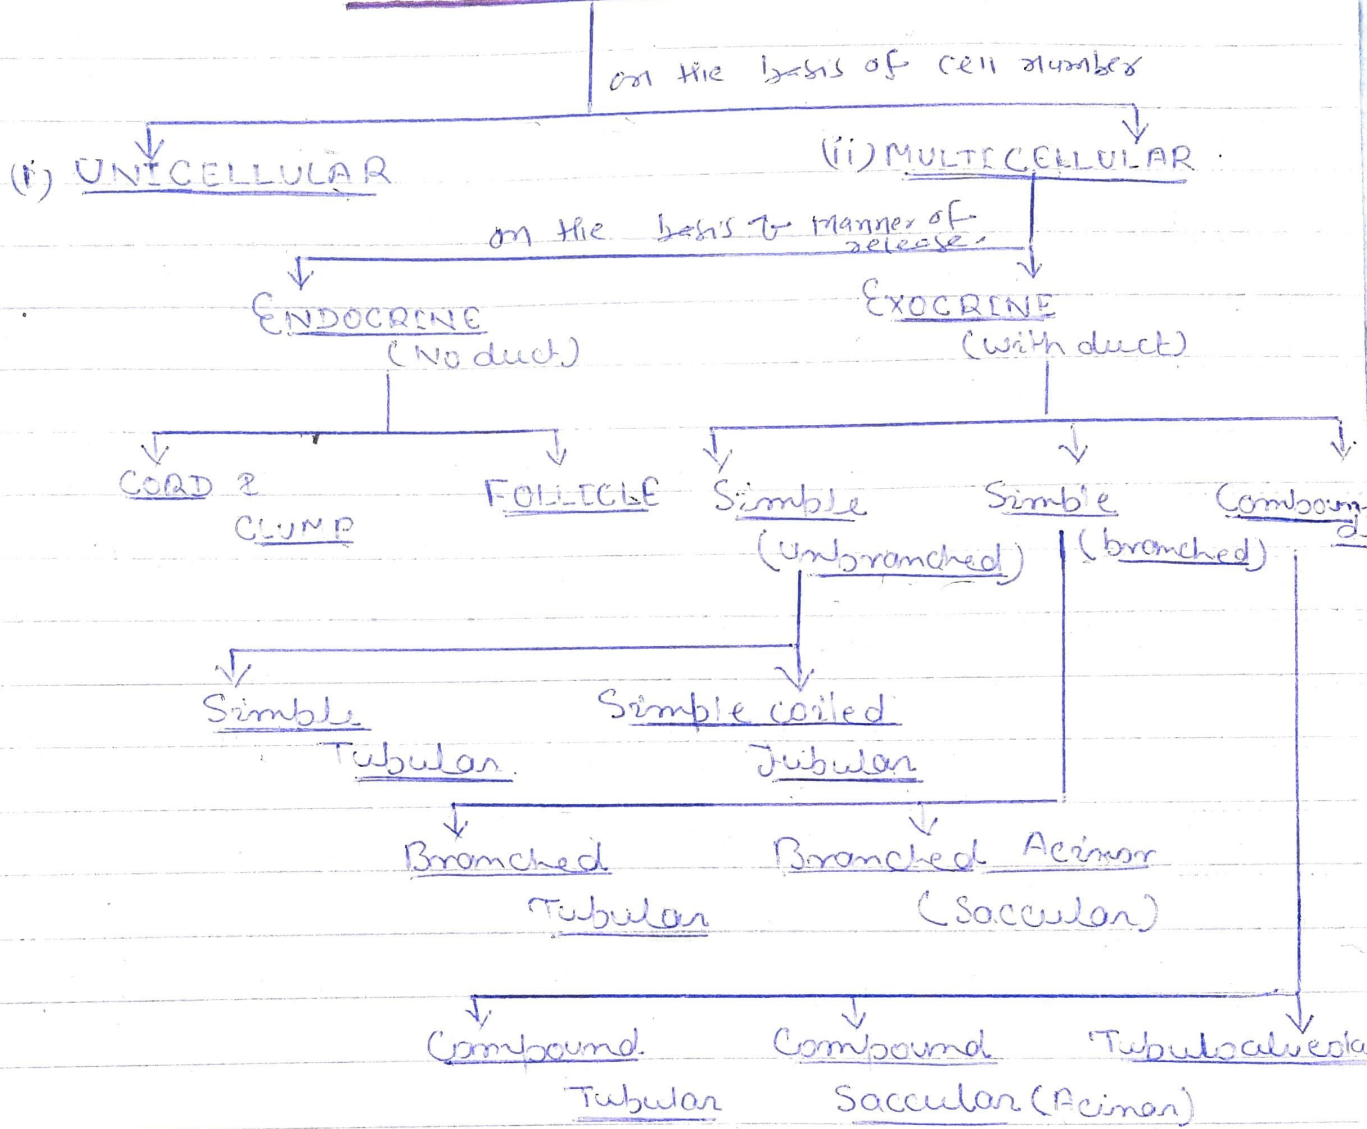 on the basis of cell number
(i) UNICELLULAR
(ii) MULTICELLULAR
on the basis of manner of
release.
ENDOCRINE
(No duct)
EXOCRINE
(with duct)
CORD &
CLUMP
FOLLICLE
Simple
(unbranched)
Simple
(branched)
Compoun
d
Simple
Tubular
Simple coiled
Tubular
Branched
Tubular
Branched Acinar
(Saccular)
Compound
Tubular
Compound
Saccular (Acinar)
Tubuloalveola